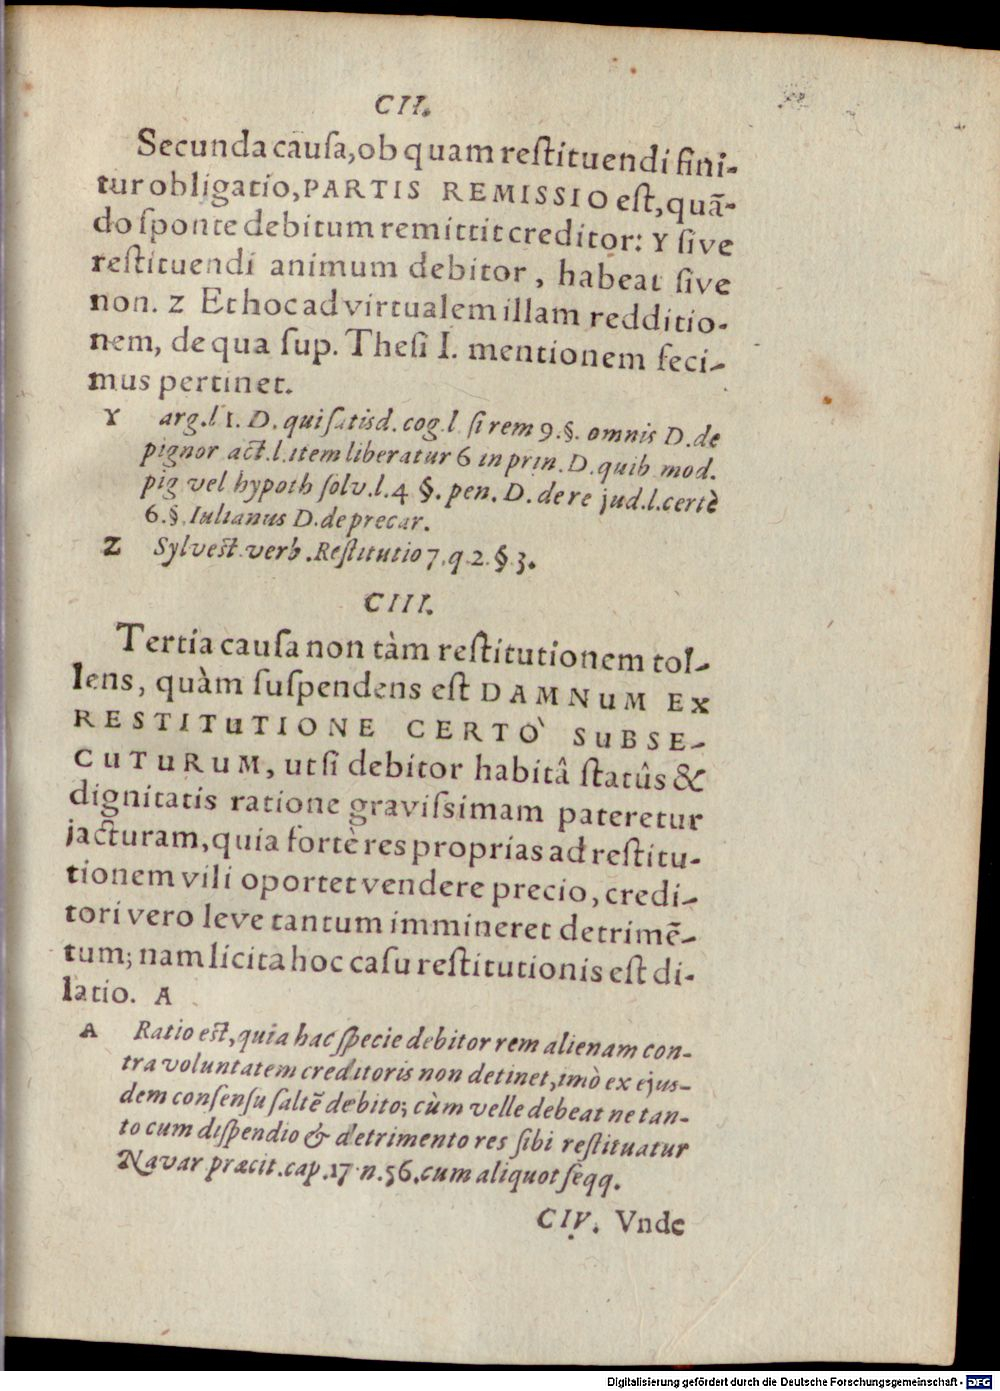 CII.
Secunda cauſa, ob quam reſtituendi fini-
tur obligatio, PARTIS REMISSIO eſt, quã-
do ſponte debitum remittit creditor: Y ſive
reſtituendi animum debitor, habeat ſive
non. Z Et hoc ad virtualem illam redditio-
nem, de qua ſup. Theſi I. mentionem feci-
mus pertinet.
Y arg. l 1. D. qui ſatisd. cog. l. ſi rem 9. §. omnis D. de
pignor act. l. item liberatur 6 in prin. D. quib mod.
pig vel hypoth ſolv. l. 4 §. pen. D. de re jud. l. certè
6. §. Iulianus D. de precar.
Z Sylveſt. verb. Reſtitutio 7. q. 2. §. 3.
CIII.
Tertia cauſa non tàm reſtitutionem tol-
lens, quàm ſuſpendens eſt DAMNuM EX
RESTITuTIONE CERTÒ SuBSE-
CuTuRuM, ut ſi debitor habitâ ſtatûs &
dignitatis ratione graviſsimam pateretur
jacturam, quia fortè res proprias ad reſtitu-
tionem vili oportet vendere precio, credi-
tori vero leve tantum immineret detrimẽ-
tum; nam licita hoc caſu reſtitutionis eſt di-
latio. A
A Ratio eſt, quia hac ſpecie debitor rem alienam con-
tra voluntatem creditoris non detinet, imò ex ejus-
dem conſenſu ſaltẽ debito; cùm velle debeat ne tan-
to cum diſpendio & detrimento res ſibi reſtituatur
Navar præcit. cap. 17. n. 56. cum aliquot ſeqq.
CIV. Vnde
Digitalisierung gefördert durch die Deutsche Forschungsgemeinschaft - DFG